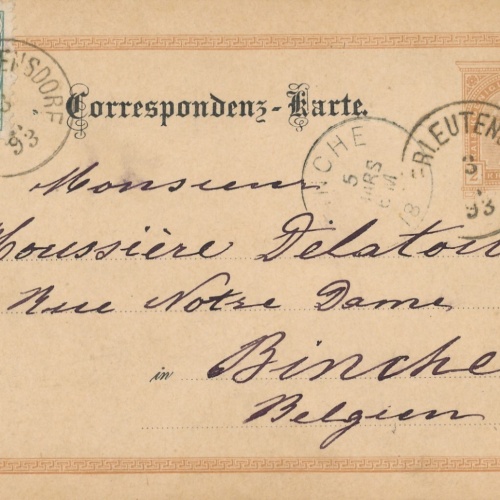 ENSDORF
93
Correspondenz-Karte.
BINCHE
5
MRS
M
18
ERLEUTEN
2
93
Monsieur
Moussière Delatou
Rue Notre Dame
in Binche
Belgien